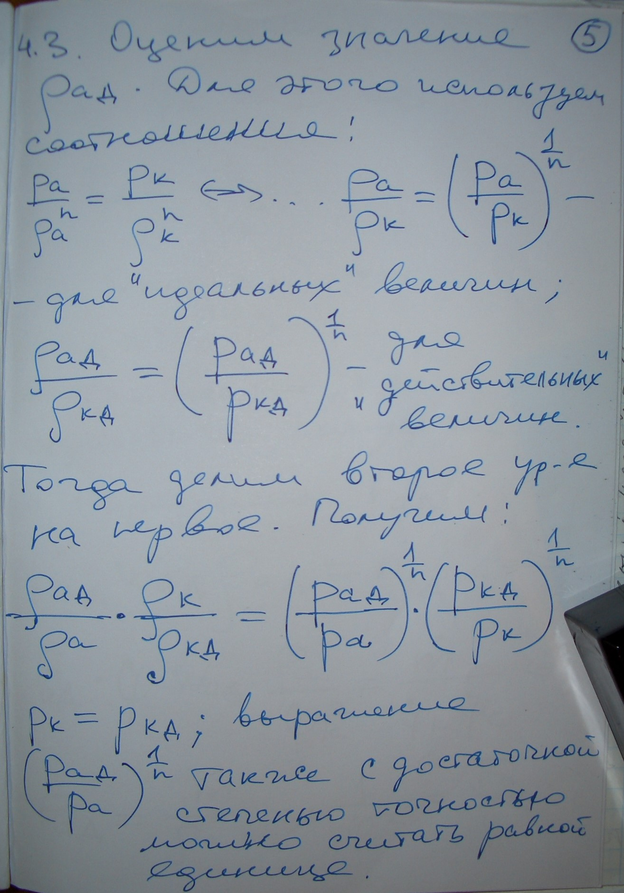 4.3. Оценим значение ⑤
ρад. Для этого используем
соотношения:
pa/ρa^n = pк/ρк^n <=> ... ρa/ρк = (pa/pк)^(1/n) –
– для "идеальных" величин;
ρад/ρкд = (pад/pкд)^(1/n) – для
"действительных"
величин.
Тогда делим второе ур-е
на первое. Получим:
ρад/ρa · ρк/ρкд = (pад/pa)^(1/n) · (pкд/pк)^(1/n)
pк = pкд; выражение
(pад/pa)^(1/n) также с достаточной
степенью точностью
можно считать равной
единице.